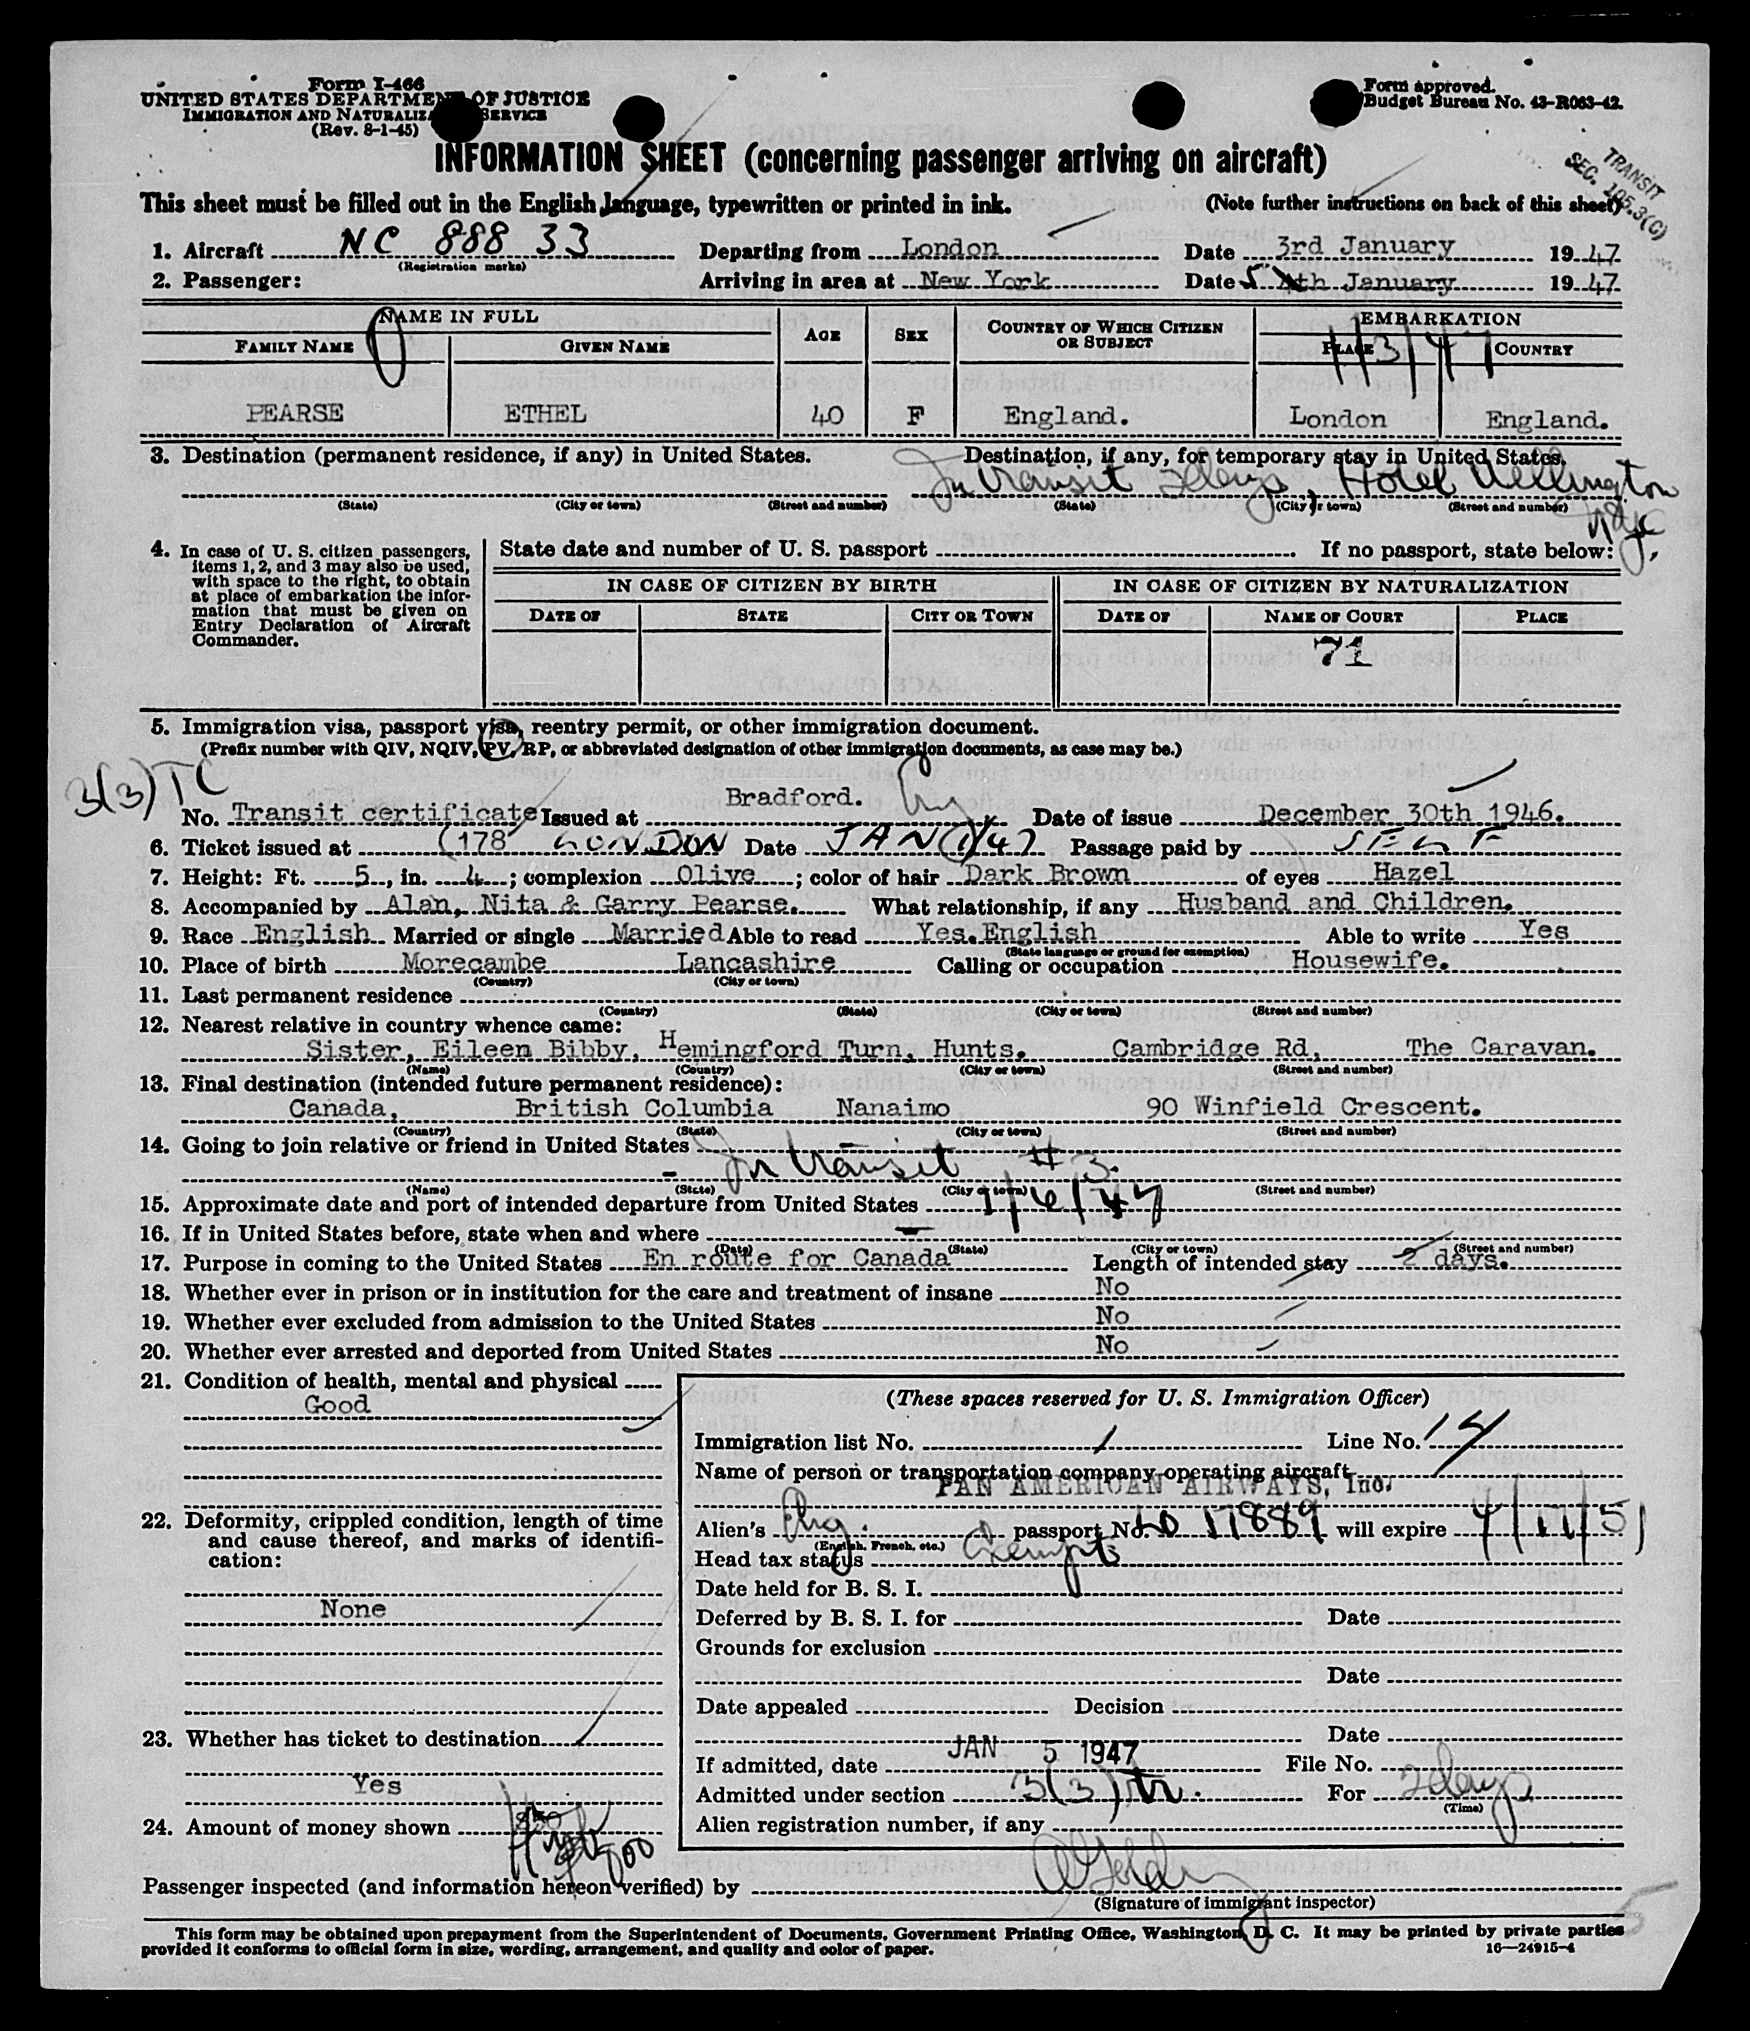 Form I-466
UNITED STATES DEPARTMENT OF JUSTICE
IMMIGRATION AND NATURALIZATION SERVICE
(Rev. 8-1-45)
Form approved.
Budget Bureau No. 43-R063-42.
INFORMATION SHEET (concerning passenger arriving on aircraft)
TRANSIT
SEC. 105.3(C)
This sheet must be filled out in the English language, typewritten or printed in ink. (Note further instructions on back of this sheet)
1. Aircraft NC 88833 Departing from London Date 3rd January 1947
(Registration marks)
2. Passenger: Arriving in area at New York Date 5 4th January 1947
NAME IN FULL AGE SEX COUNTRY OF WHICH CITIZEN OR SUBJECT EMBARKATION
FAMILY NAME GIVEN NAME PLACE COUNTRY
1/3/47
PEARSE ETHEL 40 F England. London England.
3. Destination (permanent residence, if any) in United States. Destination, if any, for temporary stay in United States.
In transit 2 days, Hotel Wellington
(State) (City or town) (Street and number) (State) (City or town) (Street and number)
NYC
4. In case of U. S. citizen passengers, items 1, 2, and 3 may also be used, with space to the right, to obtain at place of embarkation the information that must be given on Entry Declaration of Aircraft Commander.
State date and number of U. S. passport . If no passport, state below:
IN CASE OF CITIZEN BY BIRTH IN CASE OF CITIZEN BY NATURALIZATION
DATE OF STATE CITY OR TOWN DATE OF NAME OF COURT PLACE
71
5. Immigration visa, passport visa, reentry permit, or other immigration document.
(Prefix number with QIV, NQIV, PV, RP, or abbreviated designation of other immigration documents, as case may be.)
3(3) TC
No. Transit certificate Issued at Bradford. Eng Date of issue December 30th 1946.
6. Ticket issued at (178 LONDON Date JAN (1/47 Passage paid by SELF
7. Height: Ft. 5, in. 4; complexion Olive; color of hair Dark Brown of eyes Hazel
8. Accompanied by Alan, Nita & Garry Pearse. What relationship, if any Husband and Children.
9. Race English Married or single Married Able to read Yes. English Able to write Yes
(State language or ground for exemption)
10. Place of birth Morecambe Lancashire Calling or occupation Housewife.
(Country) (City or town)
11. Last permanent residence
(Country) (State) (City or town) (Street and number)
12. Nearest relative in country whence came:
Sister, Eileen Bibby, Hemingford Turn, Hunts. Cambridge Rd, The Caravan.
(Name) (Country) (City or town) (Street and number)
13. Final destination (intended future permanent residence):
Canada, British Columbia Nanaimo 90 Winfield Crescent.
(Country) (State) (City or town) (Street and number)
14. Going to join relative or friend in United States
In transit #3.
(Name) (State) (City or town) (Street and number)
15. Approximate date and port of intended departure from United States 1/6/47
16. If in United States before, state when and where
(Date) (State) (City or town) (Street and number)
17. Purpose in coming to the United States En route for Canada Length of intended stay 2 days.
18. Whether ever in prison or in institution for the care and treatment of insane No
19. Whether ever excluded from admission to the United States No
20. Whether ever arrested and deported from United States No
21. Condition of health, mental and physical
Good
22. Deformity, crippled condition, length of time and cause thereof, and marks of identification:
None
23. Whether has ticket to destination
Yes
24. Amount of money shown
(These spaces reserved for U. S. Immigration Officer)
Immigration list No. 1 Line No. 14
Name of person or transportation company operating aircraft
PAN AMERICAN AIRWAYS, Inc.
Alien's Eng. passport No. LO 17889 will expire 4/11/51
(English, French, etc.)
Head tax status Exempt
Date held for B. S. I.
Deferred by B. S. I. for Date
Grounds for exclusion
Date
Date appealed Decision
Date
If admitted, date JAN 5 1947 File No.
Admitted under section 3(3) tr. For 2 days
(Time)
Alien registration number, if any
Passenger inspected (and information hereon verified) by
(Signature of immigrant inspector)
5
This form may be obtained upon prepayment from the Superintendent of Documents, Government Printing Office, Washington, D. C. It may be printed by private parties
provided it conforms to official form in size, wording, arrangement, and quality and color of paper. 16—24915-4